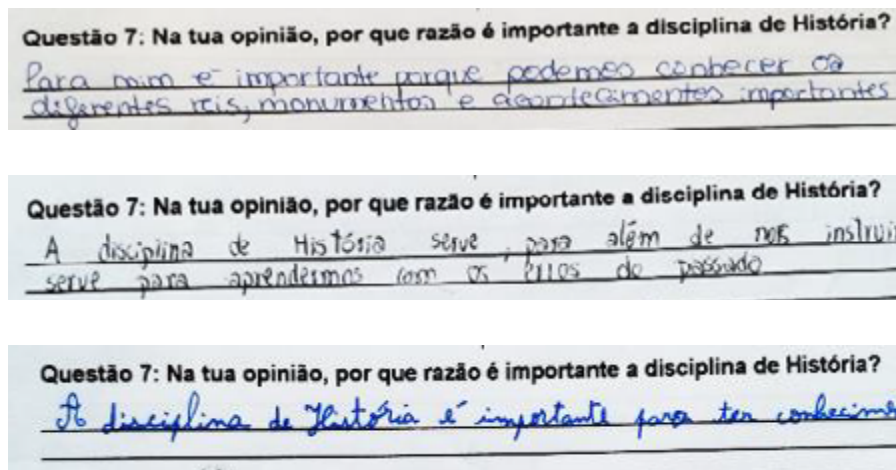 Questão 7: Na tua opinião, por que razão é importante a disciplina de História?
Para mim é importante porque podemos conhecer os
diferentes reis, monumentos e acontecimentos importantes
Questão 7: Na tua opinião, por que razão é importante a disciplina de História?
A disciplina de História serve, para além de nos instruir
serve para aprendermos com os erros do passado
Questão 7: Na tua opinião, por que razão é importante a disciplina de História?
A disciplina de História é importante para ter conhecime